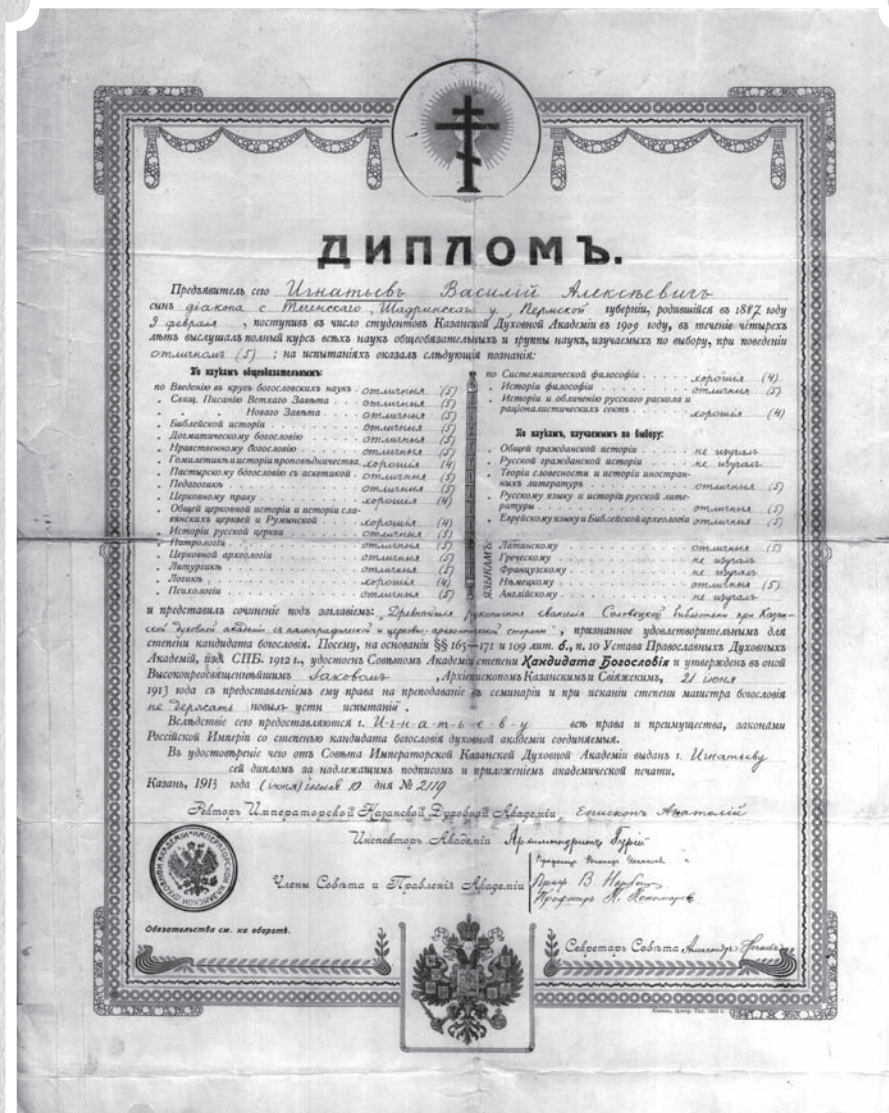 ДИПЛОМЪ.
Предъявитель сего Игнатьевъ Василій Алексѣевичъ
сынъ діакона с Теченскаго, Шадринскаго у, Пермской губерніи, родившійся въ 1887 году
9 февраля, поступивъ въ число студентовъ Казанской Духовной Академіи въ 1909 году, въ теченіе четырехъ
лѣтъ выслушалъ полный курсъ всѣхъ наукъ общеобязательныхъ и группы наукъ, изучаемыхъ по выбору, при поведеніи
отличномъ (5); на испытаніяхъ оказалъ слѣдующія познанія:
По наукамъ общеобязательнымъ:
по Введенію въ кругъ богословскихъ наукъ . отличныя (5)
„ Свящ. Писанію Ветхаго Завѣта . . . отличныя (5)
„ „ Новаго Завѣта . . . отличныя (5)
„ Библейской исторіи . . . отличныя (5)
„ Догматическому богословію . . . отличныя (5)
„ Нравственному богословію . . . отличныя (5)
„ Гомилетикѣ и исторіи проповѣдничества. хорошія (4)
„ Пастырскому богословію съ аскетикой . отличныя (5)
„ Педагогикѣ . . . отличныя (5)
„ Церковному праву . . . хорошія (4)
„ Общей церковной исторіи и исторіи сла-
вянскихъ церквей и Румынской . . . хорошія (4)
„ Исторіи русской церкви . . . отличныя (5)
„ Патрологіи . . . отличныя (5)
„ Церковной археологіи . . . отличныя (5)
„ Литургикѣ . . . отличныя (5)
„ Логикѣ . . . хорошія (4)
„ Психологіи . . . отличныя (5)
по Систематической философіи . . . хорошія (4)
„ Исторіи философіи . . . отличныя (5)
„ Исторіи и обличенію русскаго раскола и
раціоналистическихъ сектъ . . . хорошія (4)
По наукамъ, изучаемымъ по выбору:
„ Общей гражданской исторіи . . . не изучалъ
„ Русской гражданской исторіи . . . не изучалъ
„ Теоріи словесности и исторіи иностран-
ныхъ литературъ . . . отличныя (5)
„ Русскому языку и исторіи русской лите-
ратуры . . . отличныя (5)
„ Еврейскому языку и Библейской археологіи отличныя (5)
ЯЗЫКАМЪ:
Латинскому . . . отличныя (5)
Греческому . . . не изучалъ
Французскому . . . не изучалъ
Нѣмецкому . . . отличныя (5)
Англійскому . . . не изучалъ
и представилъ сочиненіе подъ заглавіемъ: „Древнѣйшія рукописныя евангелія Соловецкой библіотеки при Казан-
ской духовной академіи съ палеографической и церковно-археологической стороны", признанное удовлетворительнымъ для
степени кандидата богословія. Посему, на основаніи §§ 165—171 и 109 лит. б., п. 10 Устава Православныхъ Духовныхъ
Академій, изд. СПБ. 1912 г., удостоенъ Совѣтомъ Академіи степени Кандидата Богословія и утвержденъ въ оной
Высокопреосвященнѣйшимъ Іаковомъ, Архіепископомъ Казанскимъ и Свіяжскимъ, 21 іюня
1913 года съ предоставленіемъ ему права на преподаваніе въ семинаріи и при исканіи степени магистра богословія
не держать новыхъ устн испытаній.
Вслѣдствіе сего предоставляются г. И-г-н-а-т-ь-е-в-у всѣ права и преимущества, законами
Россійской Имперіи со степенью кандидата богословія духовной академіи соединяемыя.
Въ удостовѣреніе чего отъ Совѣта Императорской Казанской Духовной Академіи выданъ г. Игнатьеву
сей дипломъ за надлежащимъ подписомъ и приложеніемъ академической печати.
Казань, 1913 года (іюля) 10 дня № 2119
Ректоръ Императорской Казанской Духовной Академіи Епископъ Анатолій
Инспекторъ Академіи Архимандритъ Гурій
Члены Совѣта и Правленія Академіи
Проф В.
Профессоръ П. Пономаревъ
Секретарь Совѣта Александръ
ИМПЕРАТОРСКОЙ КАЗАНСКОЙ ДУХОВНОЙ АКАДЕМІИ
Обязательства см. на оборотѣ.